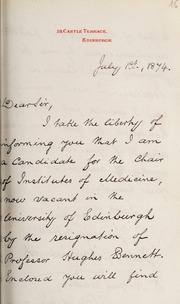 16
25 CASTLE TERRACE,
EDINBURGH.
July 1st., 1874.
Dear Sir,
I take the liberty of
informing you that I am
a Candidate for the Chair
of Institutes of Medicine,
now vacant in the
University of Edinburgh
by the resignation of
Professor Hughes Bennett.
Enclosed you will find